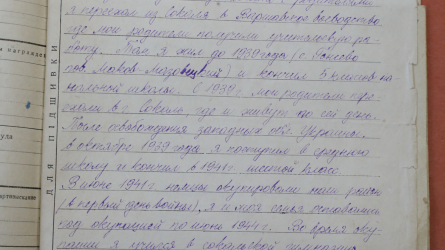 я переехал из Сокаля в Варшавское воеводство,
где мои родители получили учительскую ра-
боту. Там я жил до 1939 года (с.
пов. Минск-Мазовецкий) и кончил 5 классов на
чальной школы. С 1939 г. мои родители пере
ехали в г. Сокаль, где и живут по сей день.
После освобождения западных обл. Украины,
в октябре 1939 года я поступил в среднюю
школу и кончил в 1941 г. шестой класс.
В июне 1941 г. немцы оккупировали наш
(в первый день войны), я и моя семья оставались
под оккупацией до июля 1944 г. Во время окку-
пации я учился в сокальской
ДЛЯ ПОДШИВКИ